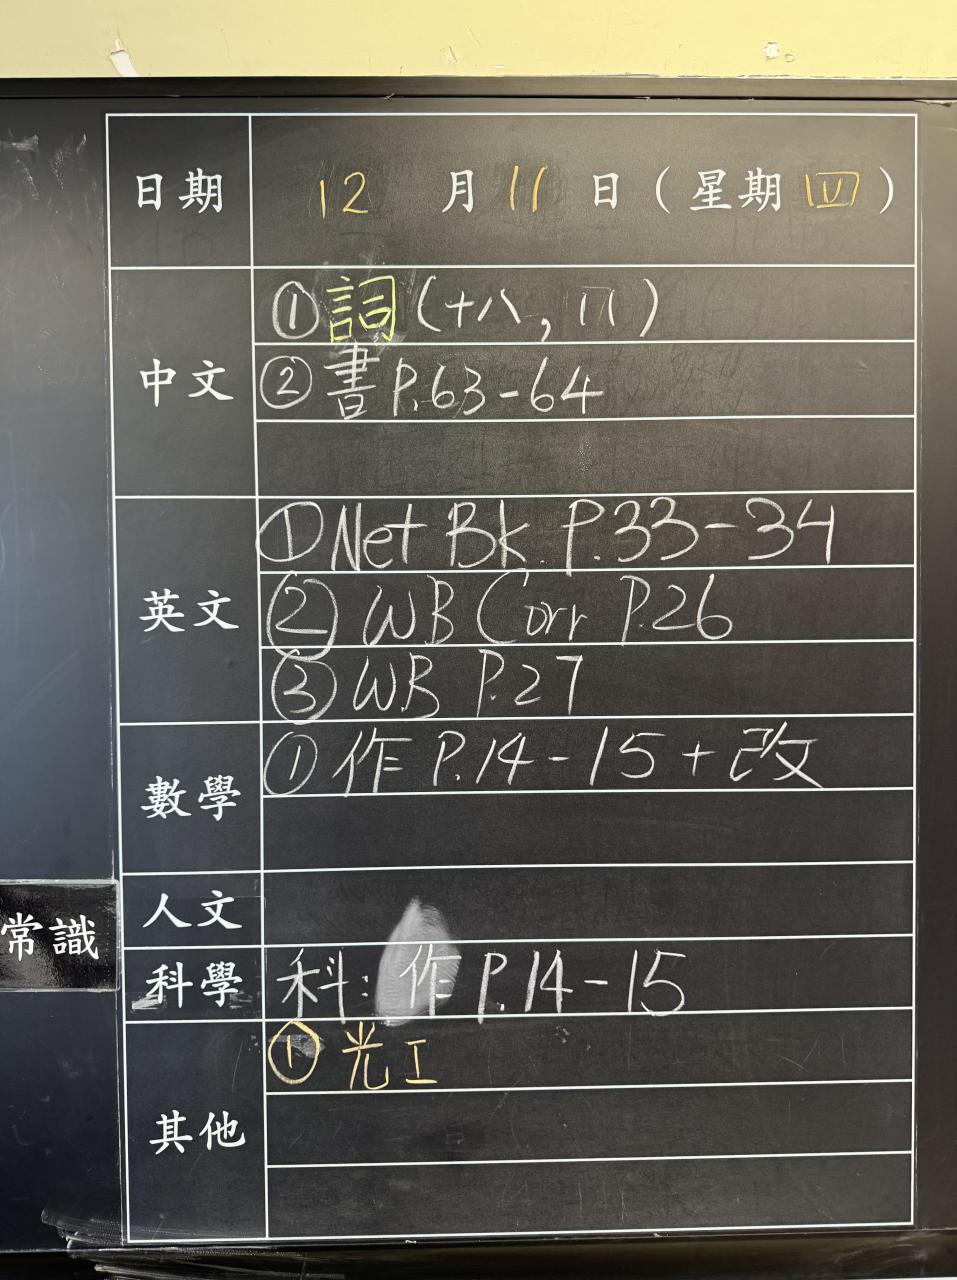 日期 12 月 11 日 (星期四)
中文
①詞(十八, 八)
②書 P.63-64
英文
① Net Bk. P.33-34
② WB Corr P.26
③ WB P.27
數學
① 作 P.14-15+改
人文
常識
科學
科: 作 P.14-15
其他
① 光工